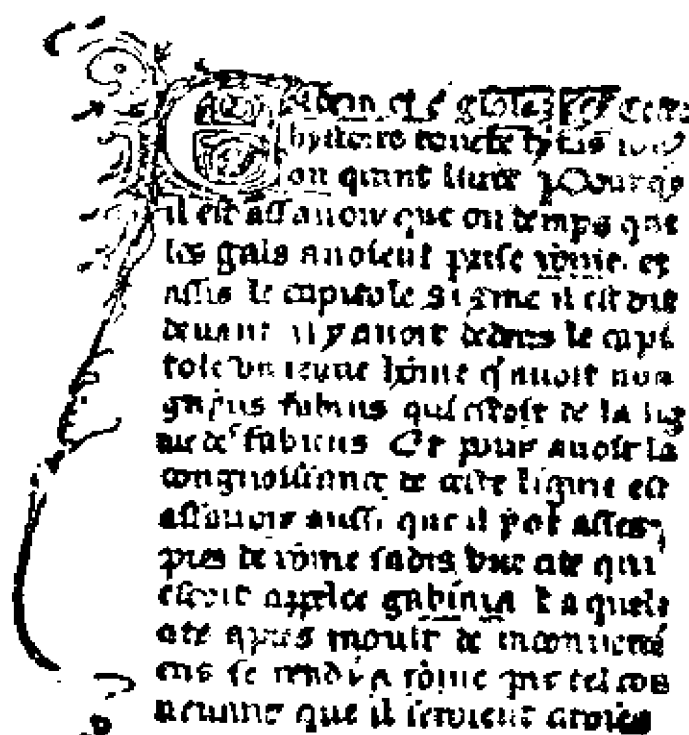 hystoire touche
on quint liure
il est assauoir que ou temps que
les gals auoient prise rōme et
assis le capitole si cōme il est dit
deuant il y auoit dedens le capi
tole vn ieune hōme q̄ auoit nom
fabius qui estoit de la lig
nie des fabiens Et pour auoir la
congnoissance de ceste lignie est
assauoir aussi que il y ot asses
pres de rōme iadis vne cite qui
estoit appelee gabinia laquele
cite apres moult de inconuenie
ens se rendi a rōme par tel con
uenant que il seroient